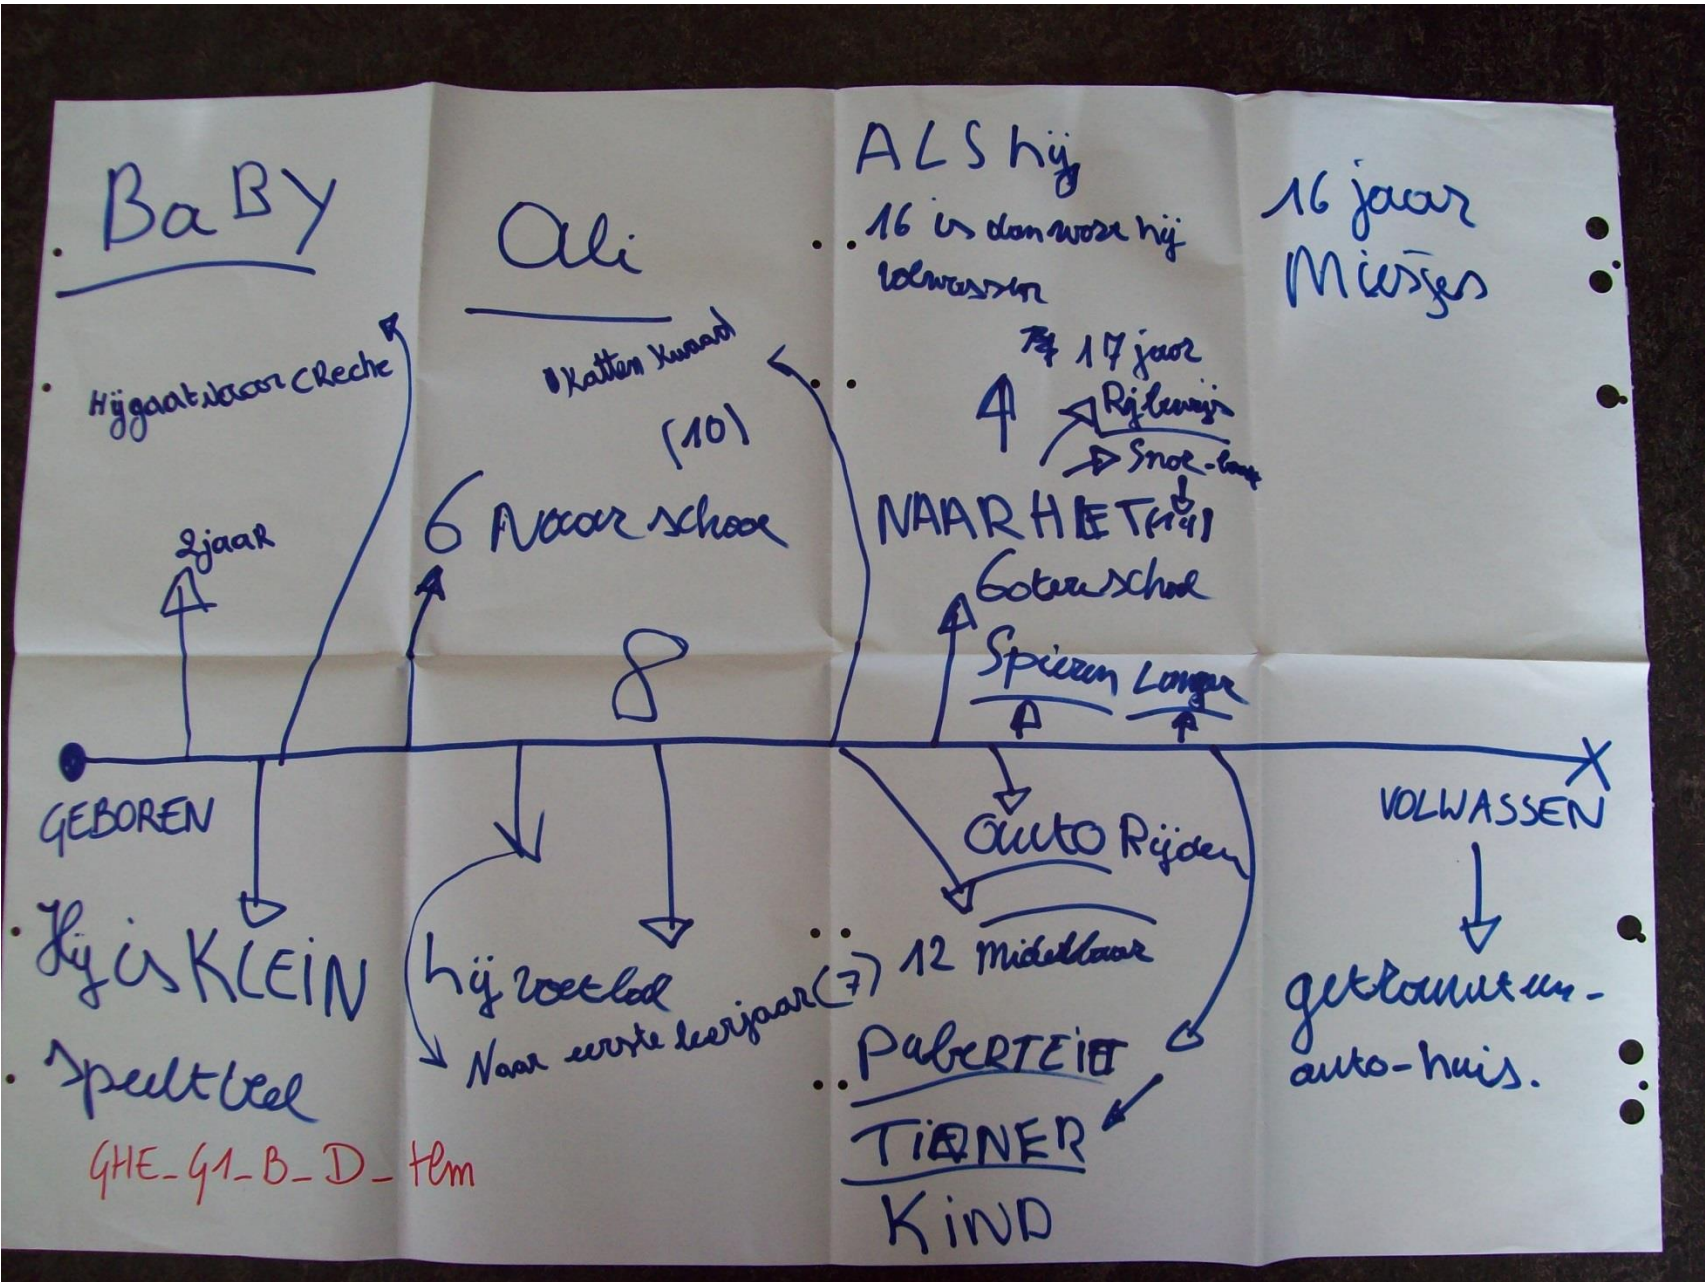 BaBY
Ali
ALS hij
16 is dan word hij
volwassen
16 jaar
Miesjes
Hij gaat Naar CReche
Katten Kwaad
(10)
17 jaar
Rijbewijs
Snor-baar
2jaaR
6 Naar school
NAAR HET (14)
Goterschool
8
Spieren Langer
GEBOREN
VOLWASSEN
auto Rijden
Hij is KLEIN
speelt veel
hij voetbal
Naar eerste leerjaar (7)
12 Middelbaar
getrouwt een-
auto-huis.
PubeRTEIT
TIENER
KIND
GHE_G1_B_D_tlm